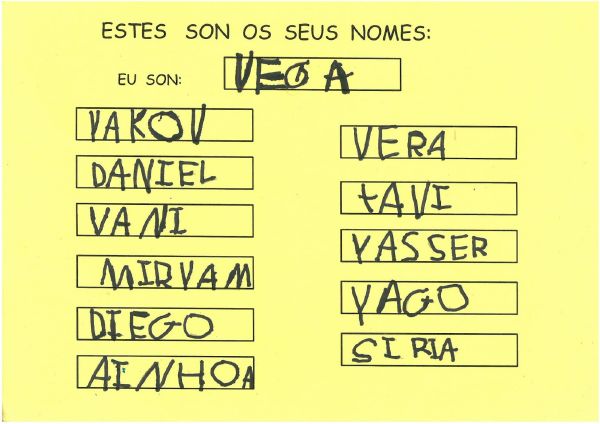 ESTES SON OS SEUS NOMES:
EU SON: VEGA
YAKOV
DANIEL
YANI
MIRYAM
DIEGO
AINHOA
VERA
tAVI
YASSER
YAGO
SIRIA